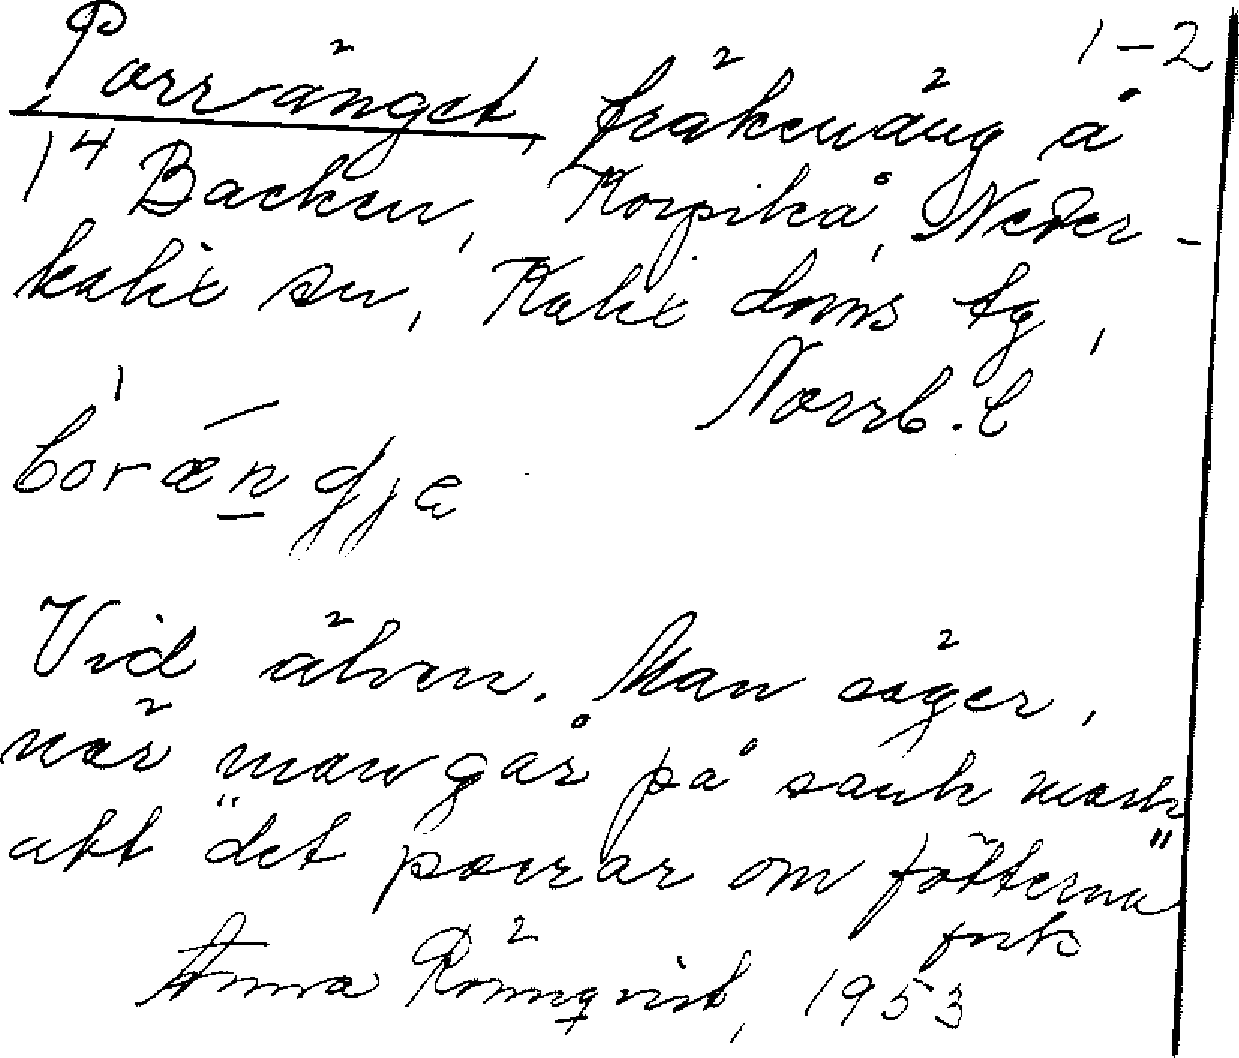 1-2
Porränget, fräkenäng å
1⁴ Backen, Korpikå, Neder-
kalix sn, Kalix doms tg,
Norrb. l
Vid älven. Man säger,
när man går på sank mark
att "det porrar om fötterna"
Anna Rönnqvist, 1953